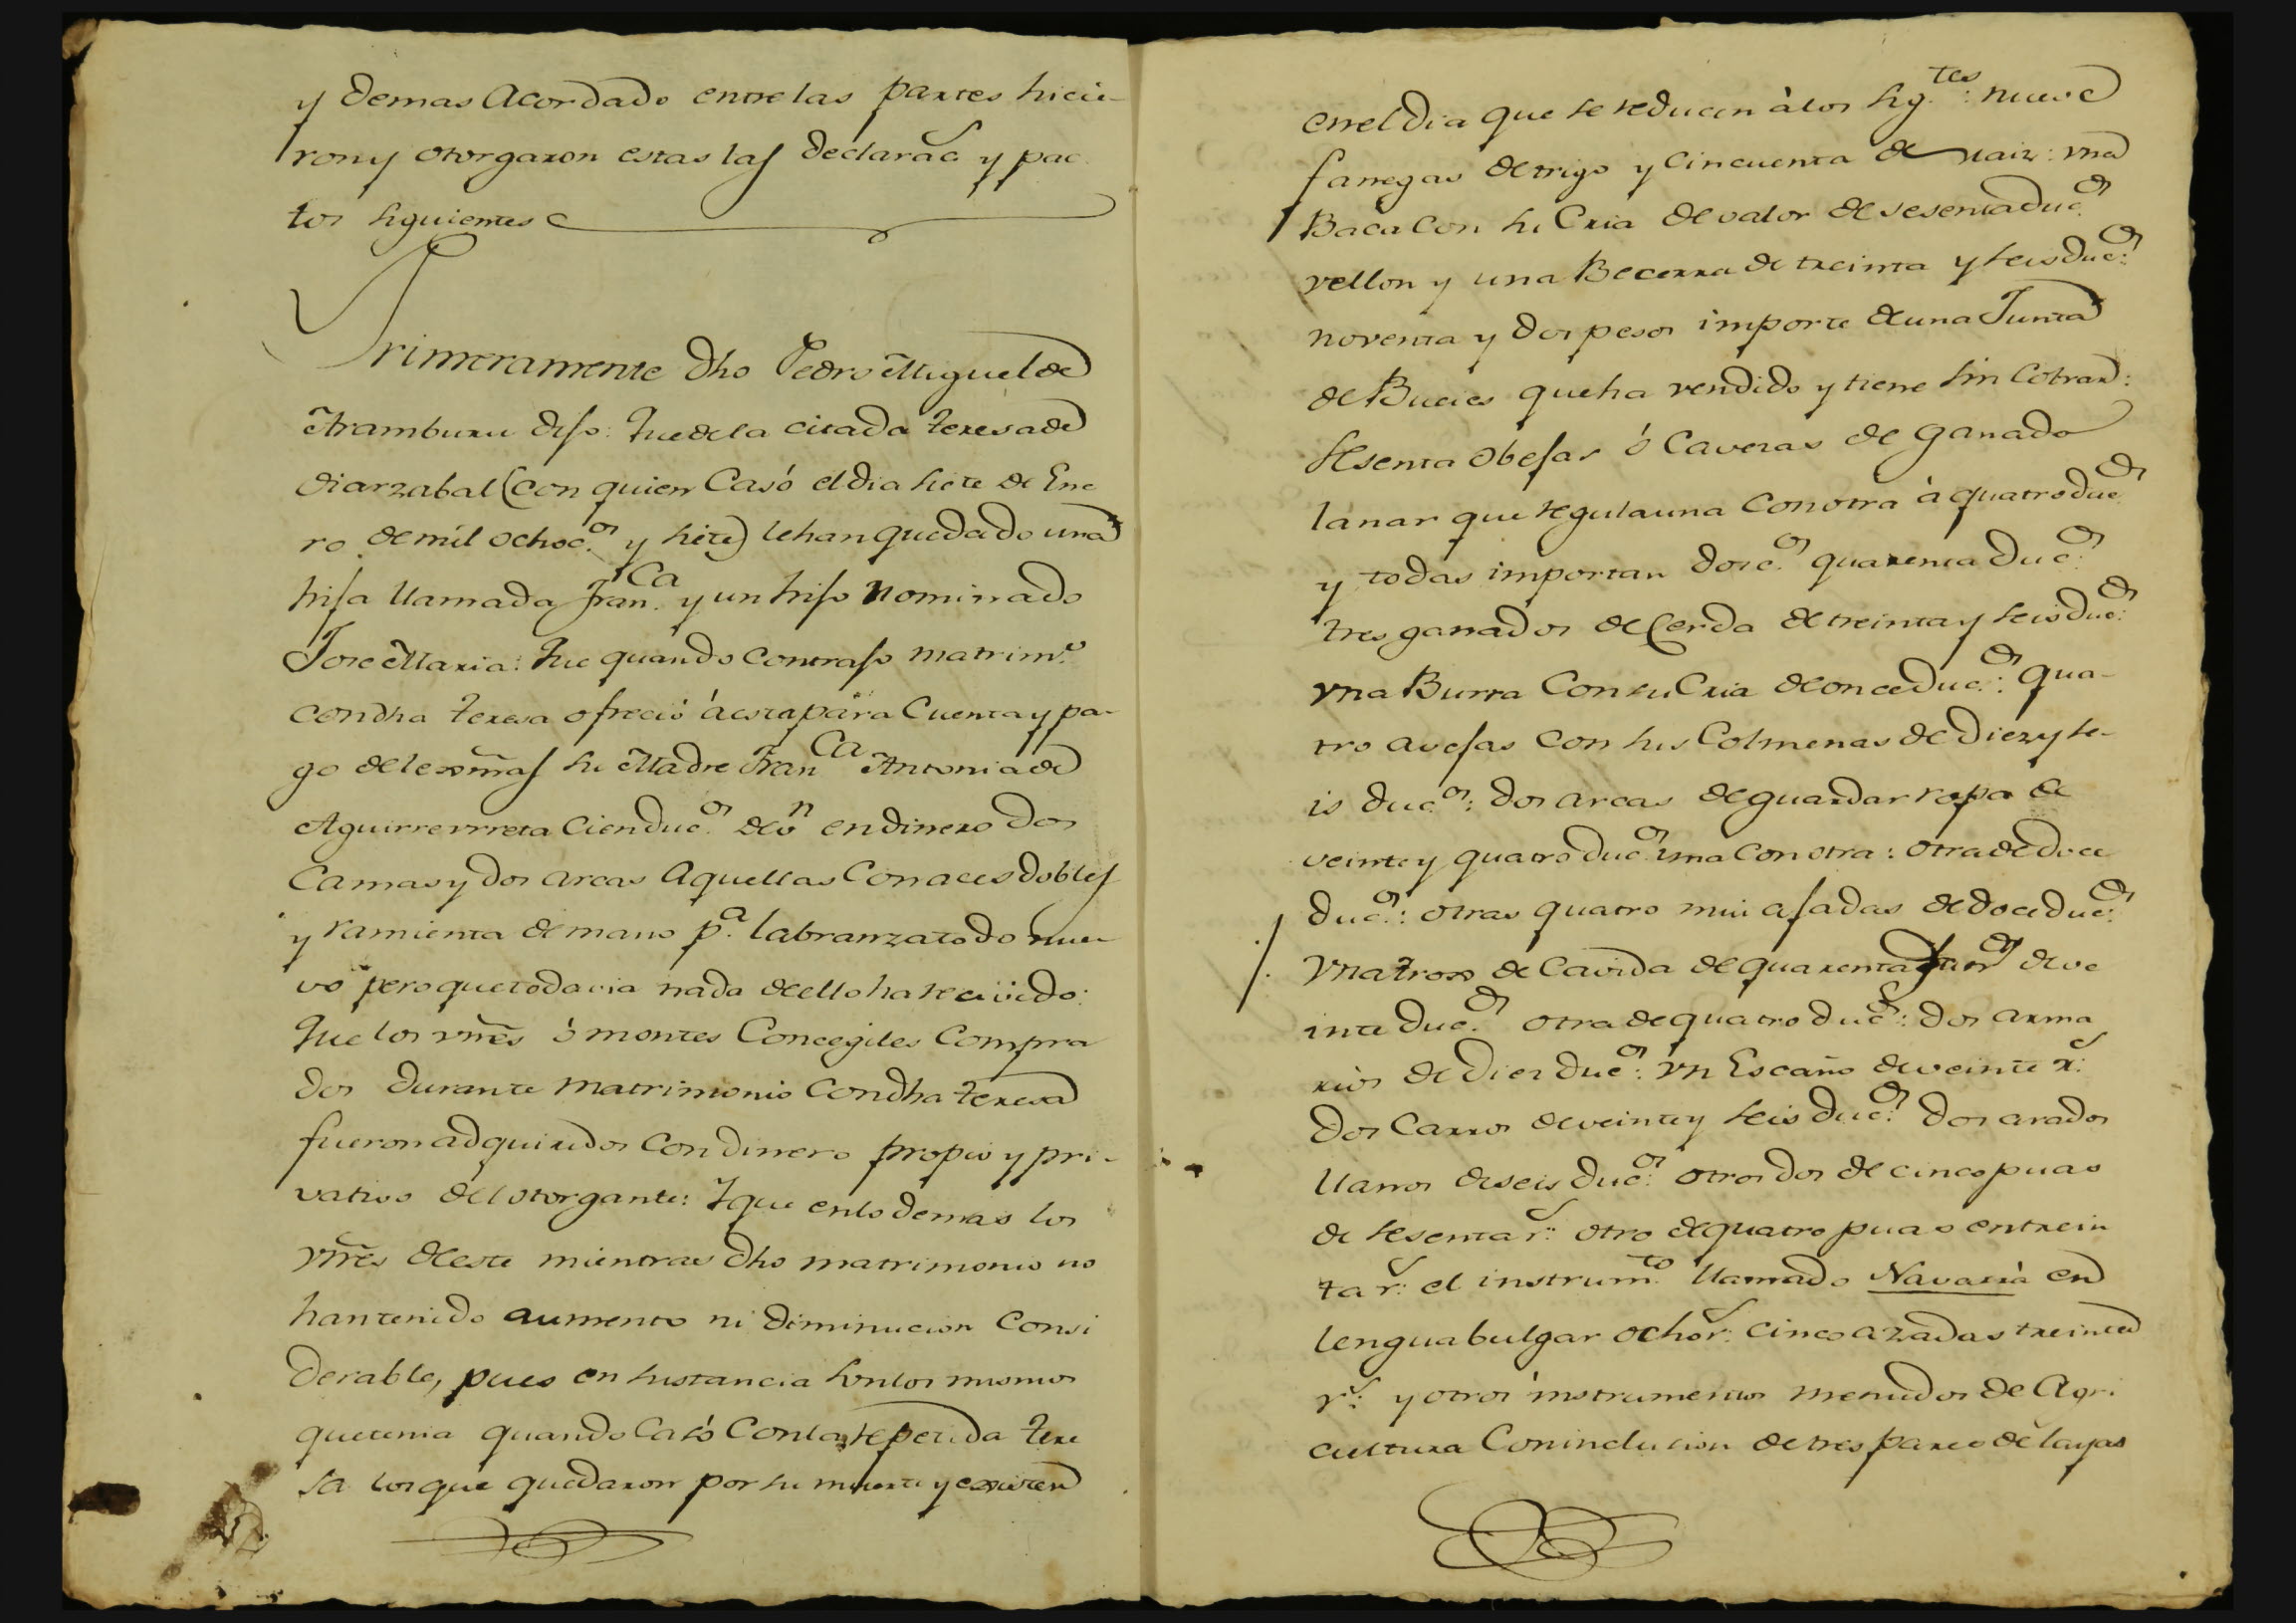 y demas acordado entre las partes hicie-
ron y otorgaron estas las declarac.s y pac
tos siguientes
Primeramente dho Pedro Miguel de
Aramburu dijo: Que de la citada Teresa de
Oiarzabal (con quien Casó el dia siete de Ene
ro de mil ochoc.os y siete) le han quedado una
hija llamada Fran.ca y un hijo nominado
Jose Maria: Que quando contrajo matrim.o
con dha Teresa ofreció á esta para Cuenta y pa-
go de lexmãs su Madre Fran.ca Antonia de
Aguirre urreta cien duc.os de v.n en dinero dos
Camas y dos arcas aquellas con aces dobles
y ramienta de mano p.a labranza todo nue-
vo pero que todavia nada de ello ha recivido:
Que los vnẽs ó montes Concegiles Compra
dos durante matrimonio con dha Teresa
fueron adquiridos con dinero propio y pri-
vativo del otorgante: Y que en lo demas los
vnẽs de este mientras dho matrimonio no
han tenido aumento ni diminucion Consi
derable, pues en sustancia son los mismos
que tenia quando Casó Con la repetida Tere
sa los que quedaron por su muerte y existen
en el dia que se reducen à los sig.tes: nueve
fanegas de trigo y Cincuenta de maiz: vna
Baca Con su Cria de valor de sesenta duc.os
vellon y una Becerra de treinta y seis duc.os:
noventa y dos pesos importe de una Junta
de Bueies que ha vendido y tiene sin Cobrar:
sesenta obejas ó Cavezas de ganado
lanar que regula una con otra à quatro duc.os
y todas importan dosc.os quarenta duc.os
tres ganados de Cerda de treinta y seis duc.os:
vna Burra Con su Cria de once duc.os: qua-
tro avejas con sus Colmenas de diez y se-
is duc.os: dos arcas de guardar ropa de
veinte y quatro duc.os una con otra: otra de doce
duc.os: otras quatro mui ajadas de doce duc.os:
vna Trox de Cavida de quarenta de ve
inte duc.os otra de quatro duc.s: dos arma
rios de diez duc.os: vn Escaño de veinte r.s:
dos Carros de veinte y seis duc.os: dos arados
llanos de seis duc.os: otros dos de cinco puas
de sesenta r.s: otro de quatro puas en trein
ta r.s: el instrum.to llamado Navarra en
lengua bulgar ocho r.s: cinco azadas treinta
r.s: y otros instrumentos menudos de Agri
cultura Con inclusion de tres pares de layas